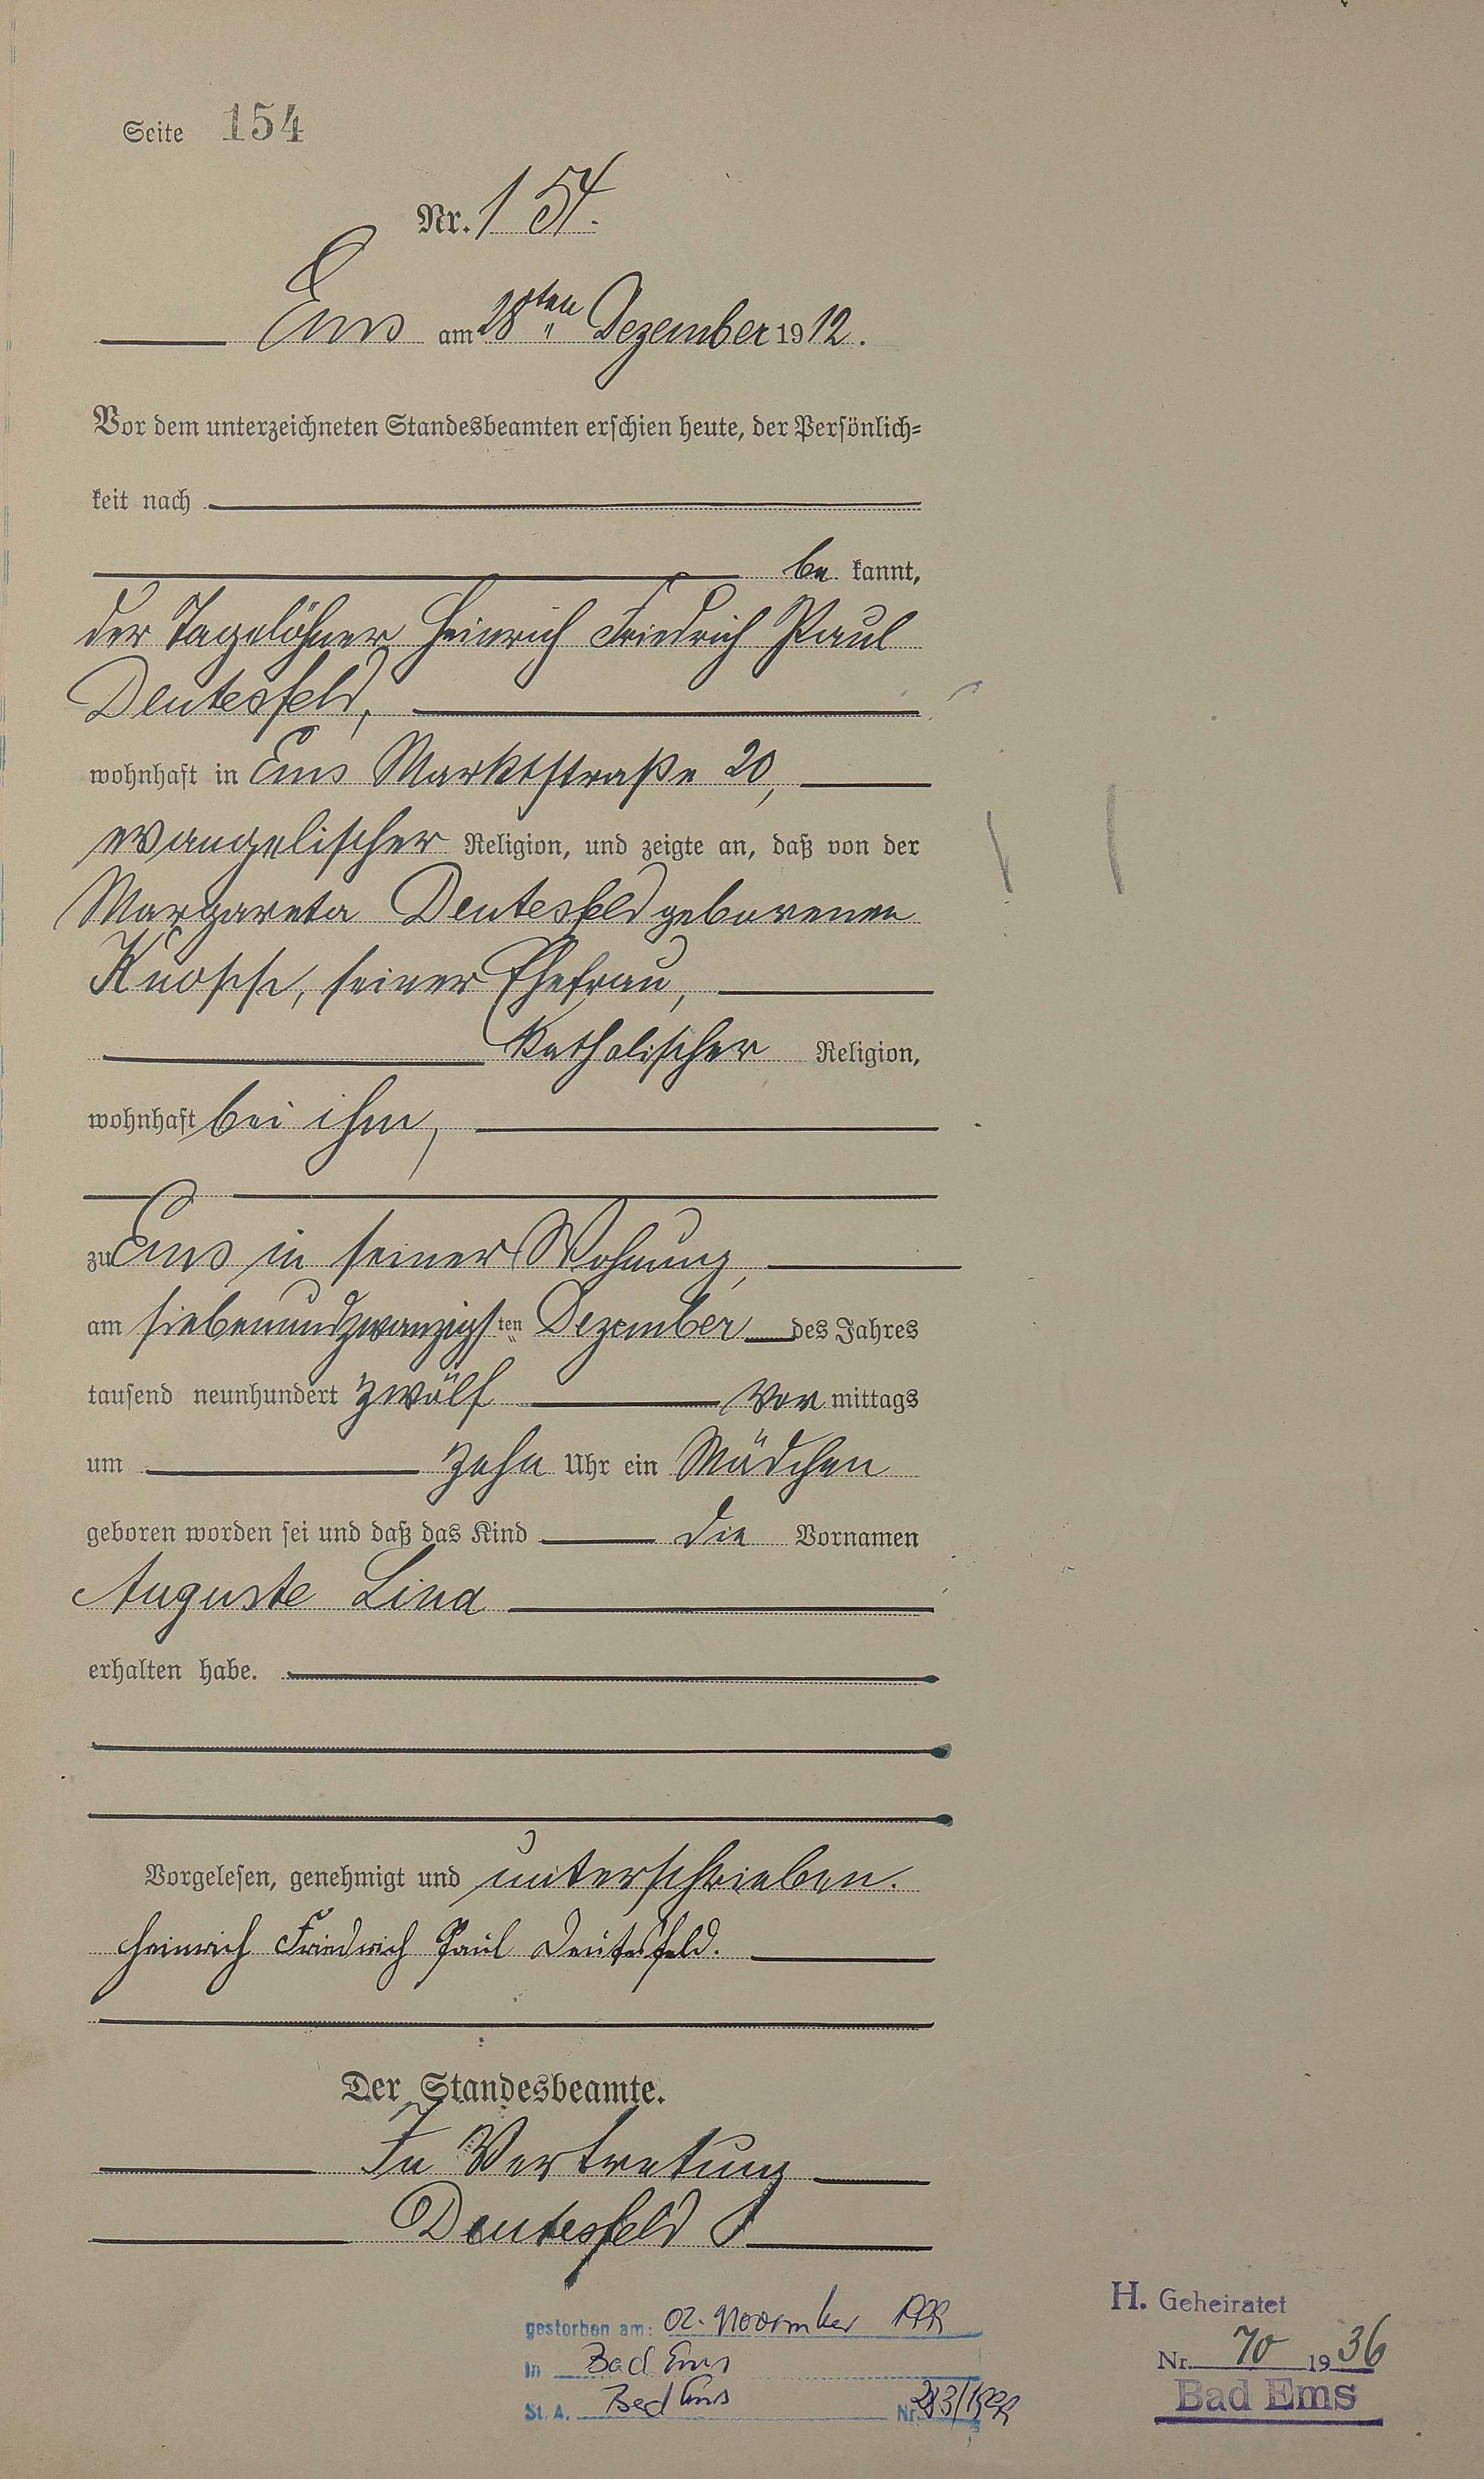 Seite 154
Nr. 154.
Ems am 28ten Dezember 1912.
Vor dem unterzeichneten Standesbeamten erschien heute, der Persönlich-
keit nach
be kannt,
der Tagelöhner Heinrich Friedrich Paul
Deutesfeld,
wohnhaft in Ems Marktstraße 20,
evangelischer Religion, und zeigte an, daß von der
Margareta Deutesfeld geborenen
seiner Ehefrau,
katholischer Religion,
wohnhaft bei ihm,
zu Ems in seiner Wohnung,
am siebenundzwanzigsten Dezember des Jahres
tausend neunhundert zwölf vor mittags
um zehn Uhr ein Mädchen
geboren worden sei und daß das Kind die Vornamen
Auguste Lina
erhalten habe.
Vorgelesen, genehmigt und unterschrieben.
Heinrich Friedrich Paul Deutesfeld.
Der Standesbeamte.
In Vertretung
Deutesfeld
gestorben am: 02. November
In Bad Ems
St. A. Bad Ems Nr.
H. Geheiratet
Nr. 70 1936
Bad Ems